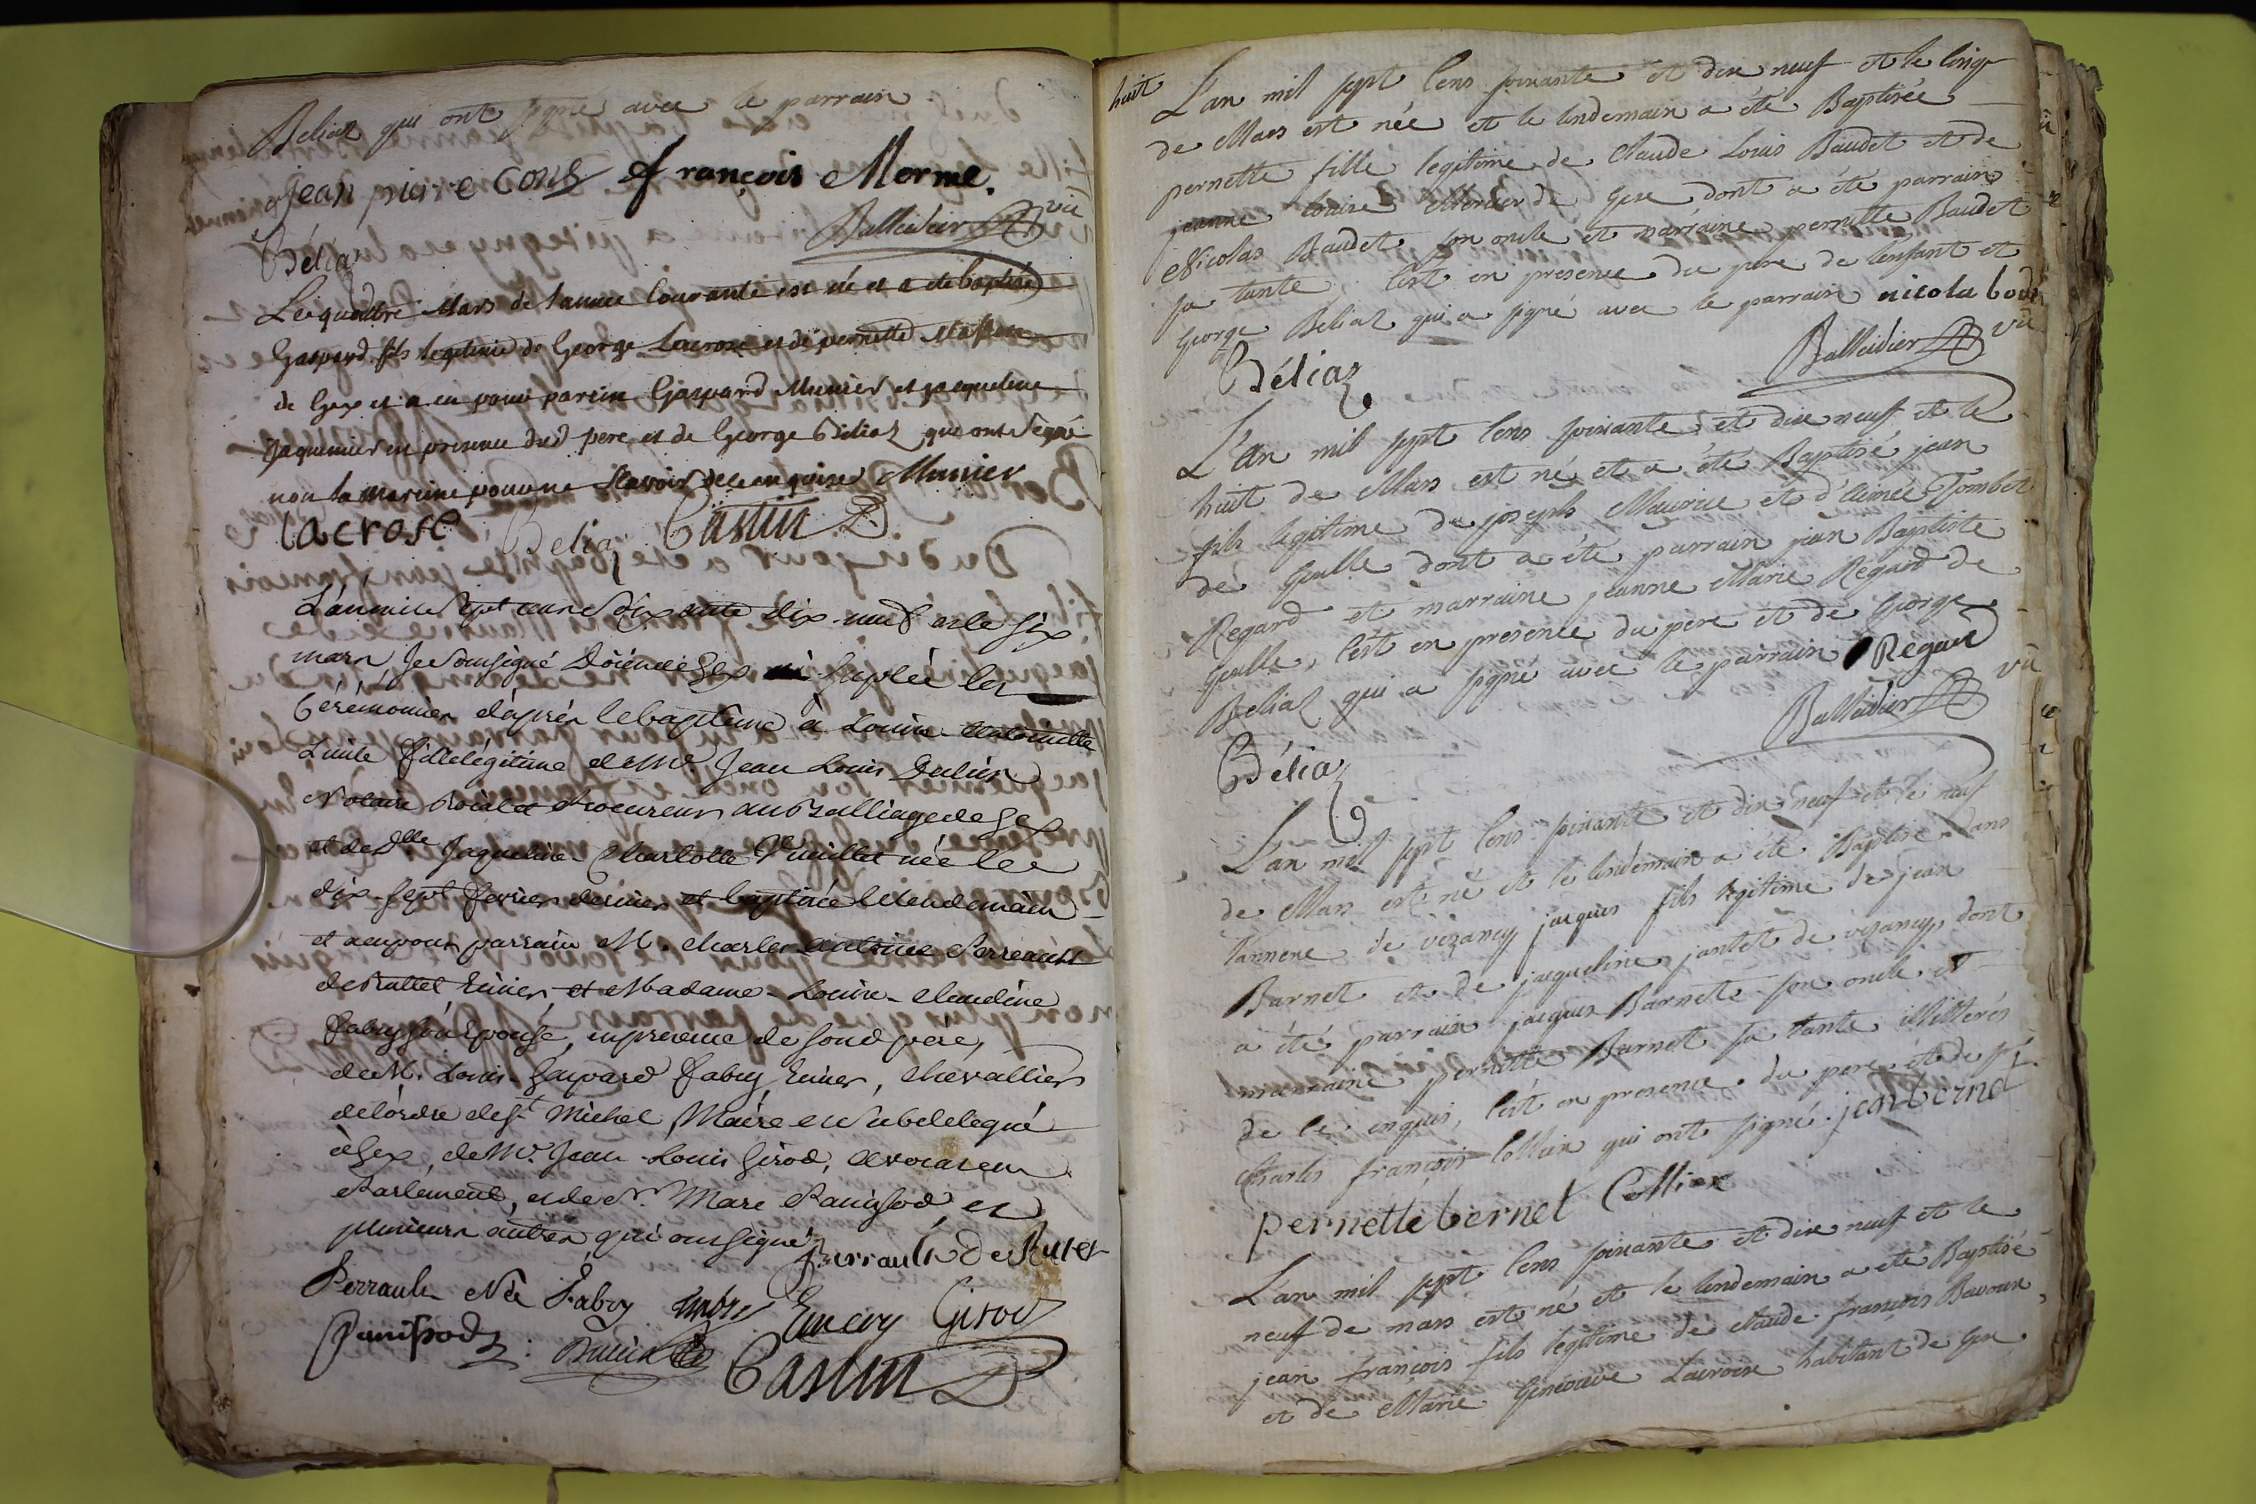 Beliaz qui ont signés avec le parrain
jean piere Cons françois Morme.
Balleidier vic
Béliaz
Le quattre Mars de l'annee Courante est né et a ete baptisé
Gaspard fils legitimé de George Lacrose et de pernette
de Gex et a eu pour parein Gaspard Munier et jacqueline
Jaquemier en presence dud pere et de George Béliaz qui ont Signé
non la mareine pour ne Scavoir de ce enquise Munier
lacrose Beliaz Castin
L'an mil Sept cens Soixante dix-neuf et le six
mars Je Soussigné Doien de Gex ai Supléé les
Cérémonies d'après le baptême à Louise
Luite fille légitime de Me. Jean Louis
Notaire Roial et Procureur au Balliage de Gex
et de Dlle Jaqueline Charlotte Vuaillet née le
dix-sept fevrier dernier et baptisée le lendemain
et a eu pour parrain M. Charles Antoine Perrault
de Ruttet Ecuier et Madame Louise Claudine
fabry son Epouse, en presence de son d père,
de M. Louis Gaspard Fabry Ecuier, chevallier
de l'ordre de St Michel Maire et Subdelegué
à Gex, de Me. Jean Louis Girod, avocat en
Parlement, et de Sr. Marc Panissod et
plusieurs autres qui ont Signé Perrault De Rutet
Perrault Née Fabry fabry Emery Girod
Panissod Castin
huit L'an mil sept Cens soixante et dix neuf et le cinq
de Mars est née et le lendemain a été Baptisée
pernette fille legitime de Claude Louis Baudet et de
jeanne Louise Mercier de Gex dont a été parrain
Nicolas Baudet son oncle et marraine pernette Baudet
sa tante, c'est en presence du pere de l'enfant et
George Beliaz qui a signé avec le parrain nicola bode
Balleidier vic
Béliaz
L'an mil sept Cens soixante et dix neuf et le
huit de Mars est né et a été Baptisé jean
fils legitime de joseph Maurice et d'aimée Tombet
de Gralle dont a été parrain jean Baptiste
Regard et marraine jeanne Marie Regard de
Gralle, c'est en presence du pere et de George
Beliaz qui a signé avec le parrain Regard
Balleidier vic
Béliaz
L'an mil sept Cens soixante et dix neuf et le neuf
de Mars est né et le lendemain a été Baptisé dans
l'annexe de vezancy jacques fils legitime de jean
Barnet et de jaqueline jantet de vezancy, dont
a été parrain jacques Barnet son oncle et
marraine pernette Barnet sa tante illitterés
de ce enquis, c'est en presence du pere et de Sr.
Charles françois Collier qui ont signé. jean bernet
pernette bernet Collier
L'an mil sept Cens soixante et dix neuf et le
neuf de mars est né et le lendemain a été Baptisé
jean françois fils legitime de claude françois
et de Marie Genevieve Lacroix habitant de Gex